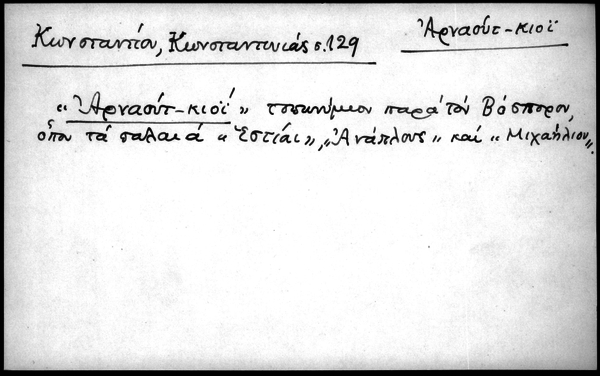 Κωνσταντίου, Κωνσταντινιάς σ.129
Ἀρναούτ-κιοϊ
"Ἀρναούτ-κιοϊ" τοπωνύμιον παρὰ τὸν Βόσπορον,
ὅπου τὰ παλαιὰ "Ἑστίαι", "Ἀνάπλους" καὶ "Μιχαήλιον".